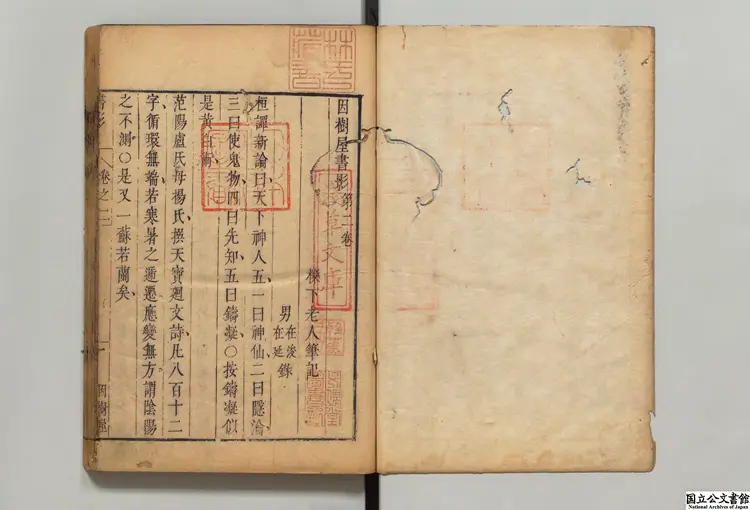 因樹屋書影第二卷
櫟下老人筆記
男在浚錄
在延
桓譚新論曰天下神人五一曰神仙二曰隱淪
三曰使鬼物四曰先知五曰鑄凝○按鑄凝似
是黃白術
范陽盧氏母楊氏撰天寶𢌞文詩凡八百十二
字循環無端若寒暑之遞遷應變無方謂陰陽
之不測○是又一蘇若蘭矣
書影
卷之二
一
因樹屋
林氏藏書
淺草文庫
国立公文書館
National Archives of Japan